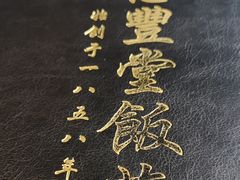 豐堂飯
始創于一八五八年